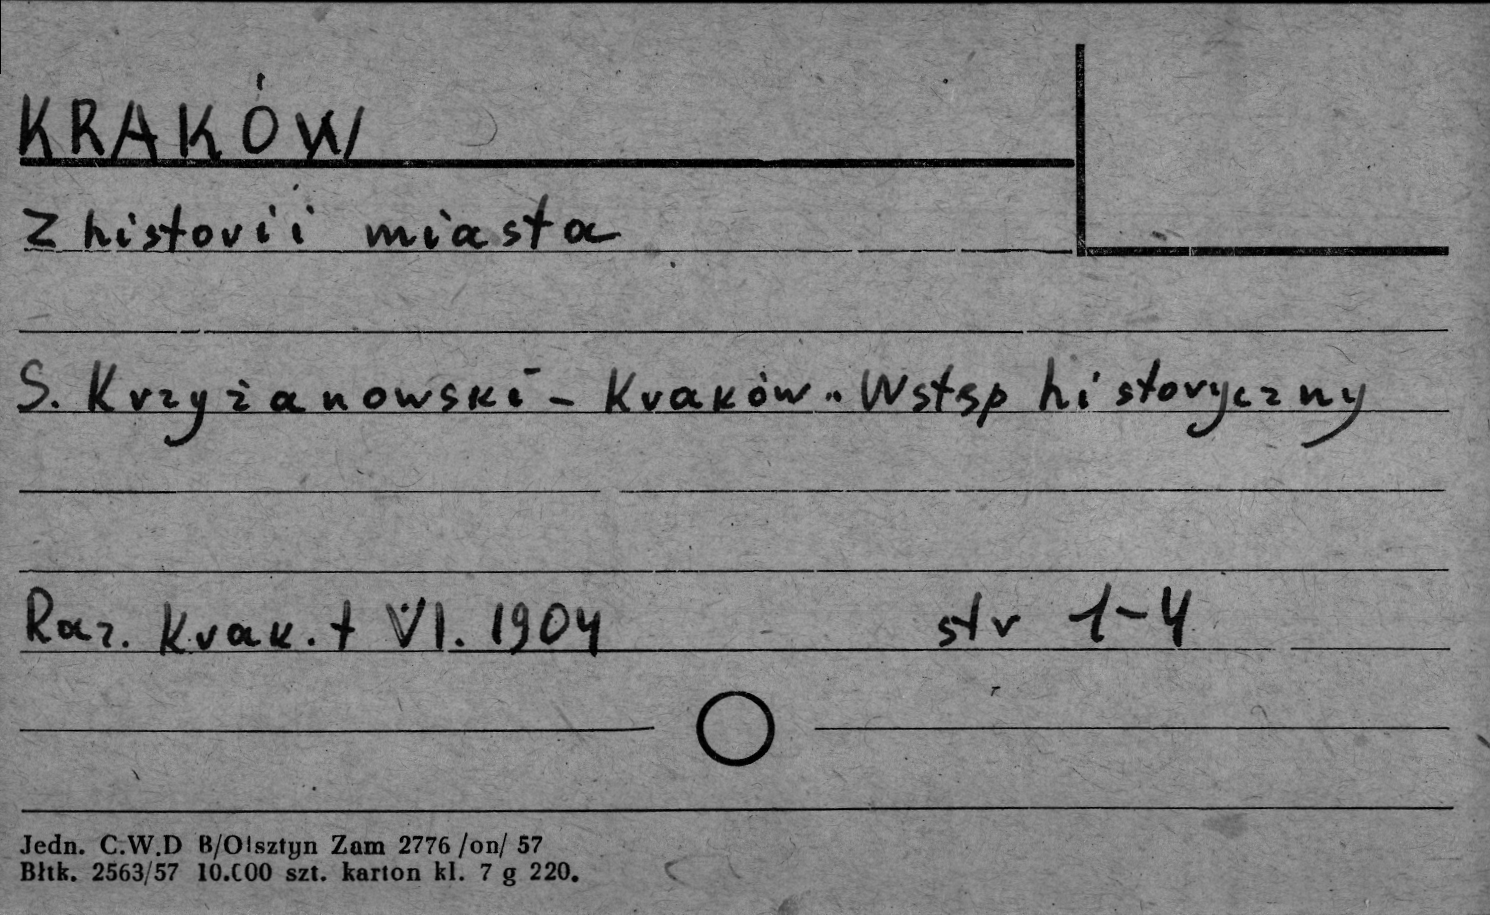 KRAKÓW
Z historii miasta
S. Krzyżanowski - Kraków. Wstęp historyczny
Roz. Krak. t VI. 1904 str 1-4
Jedn. C.W.D B/Olsztyn Zam 2776 /on/ 57
Błtk. 2563/57 10.000 szt. karton kl. 7 g 220.